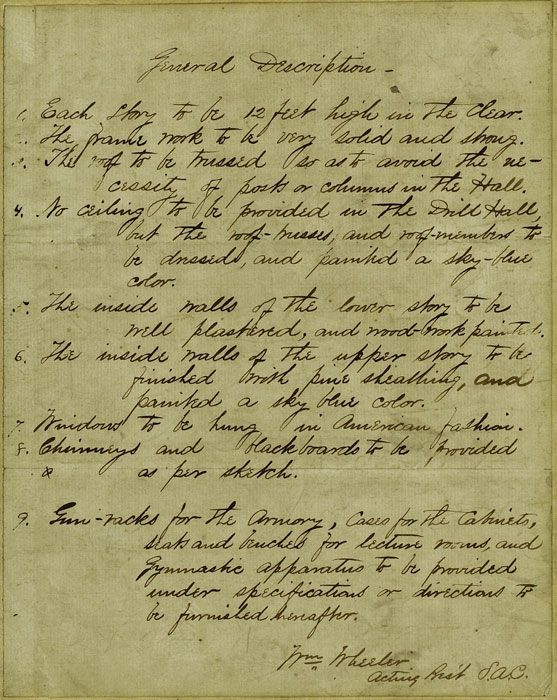 General Description -
1. Each Story to be 12 feet high in the clear.
2. The frame work to be very solid and strong.
3. The roof to be trussed so as to avoid the ne-
cessity of posts or columns in the Hall.
4. No ceiling to be provided in the Drill Hall,
but the roof-trusses, and roof-members to
be dressed, and painted a sky-blue
color.
5. The inside walls of the lower story to be
well plastered, and wood-work painted.
6. The inside walls of the upper story to be
finished with pine sheathing, and
painted a sky blue color.
7. Windows to be hung in American fashion.
8. Chimneys and blackboards to be provided
& as per sketch.
9. Gun-racks for the Armory, Cases for the Cabinets,
seats and benches for lecture rooms, and
Gymnastic apparatus to be provided
under specifications or directions to
be furnished hereafter.
Wm Wheeler
Acting Pres't S.A.C.